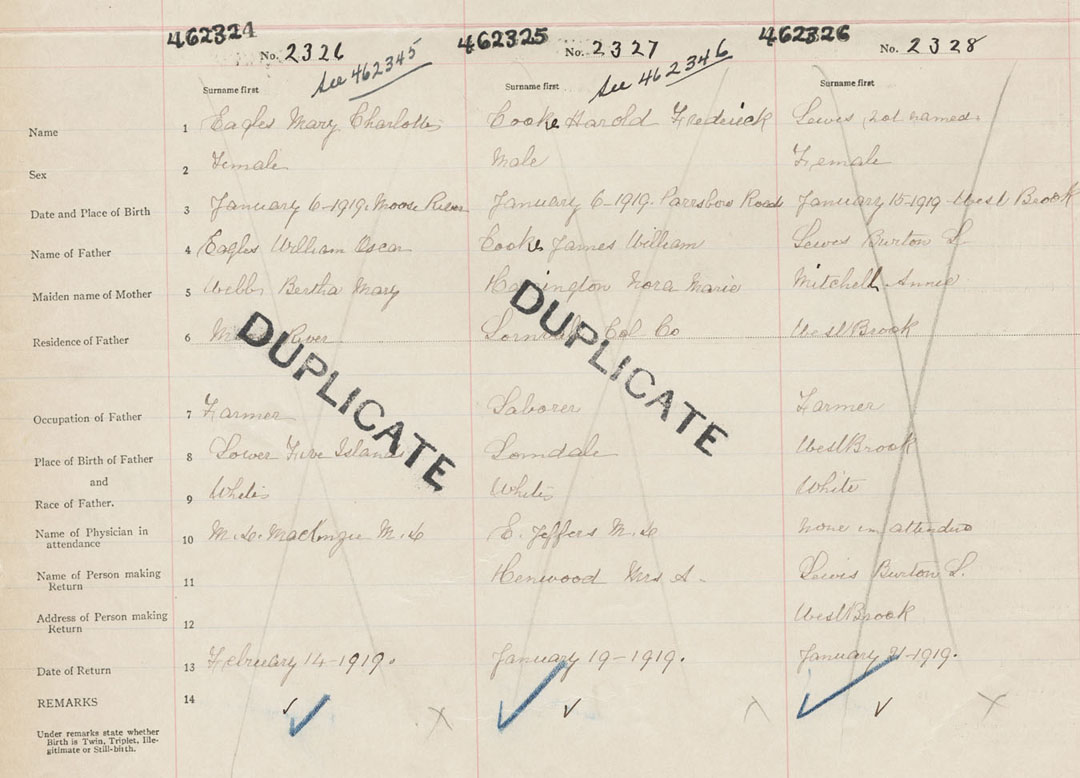 462324 462325 462326
No. 2326 No. 2327 No. 2328
See 462345 See 462346
Surname first Surname first Surname first
Name 1 Eagles Mary Charlotte Cooke Harold Frederick Lewis, not named.
Sex 2 Female Male Female
Date and Place of Birth 3 January 6-1919. Moose River January 6-1919. Parrsboro Road January 15-1919 West Brook
Name of Father 4 Eagles William Oscar Cooke James William Lewis Burton L.
Maiden name of Mother 5 Webb Bertha Mary Harrington Nora Marie Mitchell Annie
Residence of Father 6 River Col. Co West Brook
DUPLICATE DUPLICATE
Occupation of Father 7 Farmer Laborer Farmer
Place of Birth of Father 8 Lower Five Islands Lorndale West Brook
and
Race of Father. 9 White White White
Name of Physician in
attendance 10 M.D. MacKenzie M.D. E. Jeffers M.D. none in attendance
Name of Person making
Return 11 Henwood Mrs A. Lewis Burton L.
Address of Person making
Return 12 West Brook
Date of Return 13 February 14-1919. January 19-1919. January 21-1919.
REMARKS 14
Under remarks state whether
Birth is Twin, Triplet, Ille-
gitimate or Still-birth.